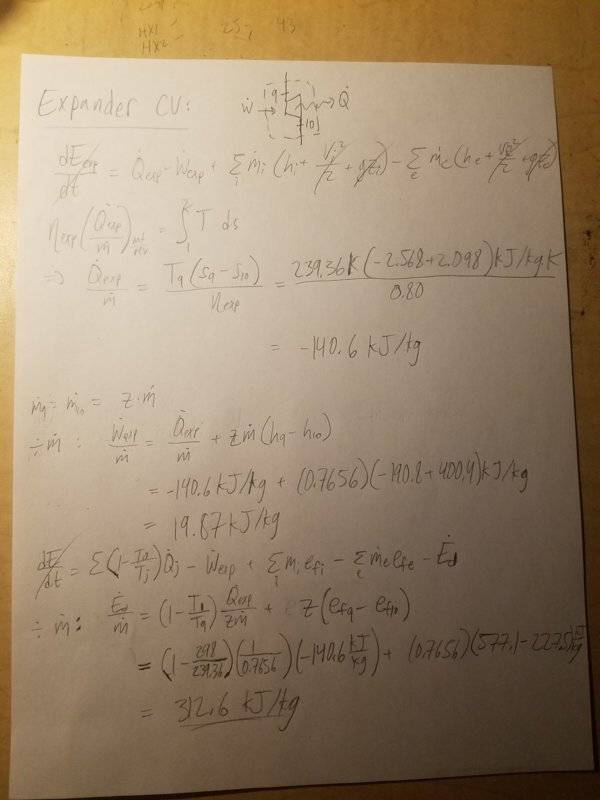 HX1
HX2 25, 43
Expander CV:
9
Ẇ Q̇
10
dE_exp/dt = Q̇_exp - Ẇ_exp + Σ_i ṁ_i (h_i + V_i²/2 + gz_i) - Σ_e ṁ_e (h_e + V_e²/2 + gz_e)
η_exp (Q̇_exp/ṁ)_int rev = ∫_1^2 T ds
⇒ Q̇_exp/ṁ = T_9 (s_9 - s_10)/η_exp = 239.36K (-2.568 + 2.098) kJ/kg·K / 0.80
= -140.6 kJ/kg
ṁ_9 = ṁ_10 = z·ṁ
÷ṁ : Ẇ_exp/ṁ = Q̇_exp/ṁ + zṁ (h_9 - h_10)
= -140.6 kJ/kg + (0.7656)(-190.8 + 400.4) kJ/kg
= 19.87 kJ/kg
dE/dt = Σ (1 - T_0/T_j) Q̇_j - Ẇ_exp + Σ_i ṁ_i e_fi - Σ_e ṁ_e e_fe - Ė_d
÷ṁ: Ė_d/ṁ = (1 - T_0/T_9) Q̇_exp/zṁ + z (e_f9 - e_f10)
= (1 - 298/239.36)(1/0.7656)(-140.6 kJ/kg) + (0.7656)(577.1 - 227.5) kJ/kg
= 312.6 kJ/kg